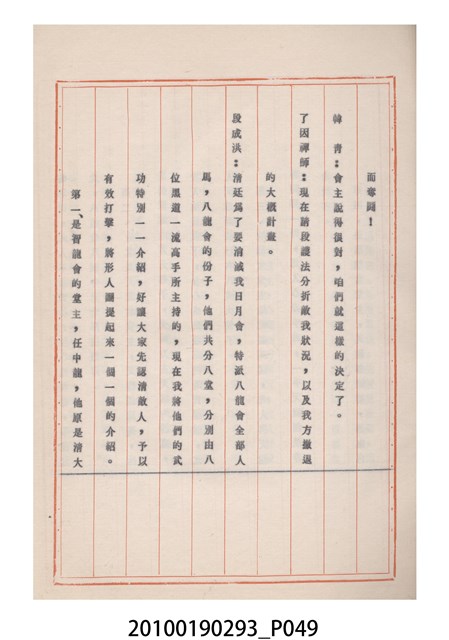 而奮鬪！
韓　青：會主說得很對，咱們就這樣的決定了。
了因禪師：現在請段護法分折敵我狀況，以及我方撤退
的大概計畫。
段成洪：清廷爲了要消滅我日月會，特派八龍會全部人
馬，八龍會的份子，他們共分八堂，分別由八
位黑道一流高手所主持的，現在我將他們的武
功特別一一介紹，好讓大家先認清敵人，予以
有效打擊，將形人圖提起來一個一個的介紹。
第一、是智龍會的堂主，任中龍，他原是清大
20100190293_P049